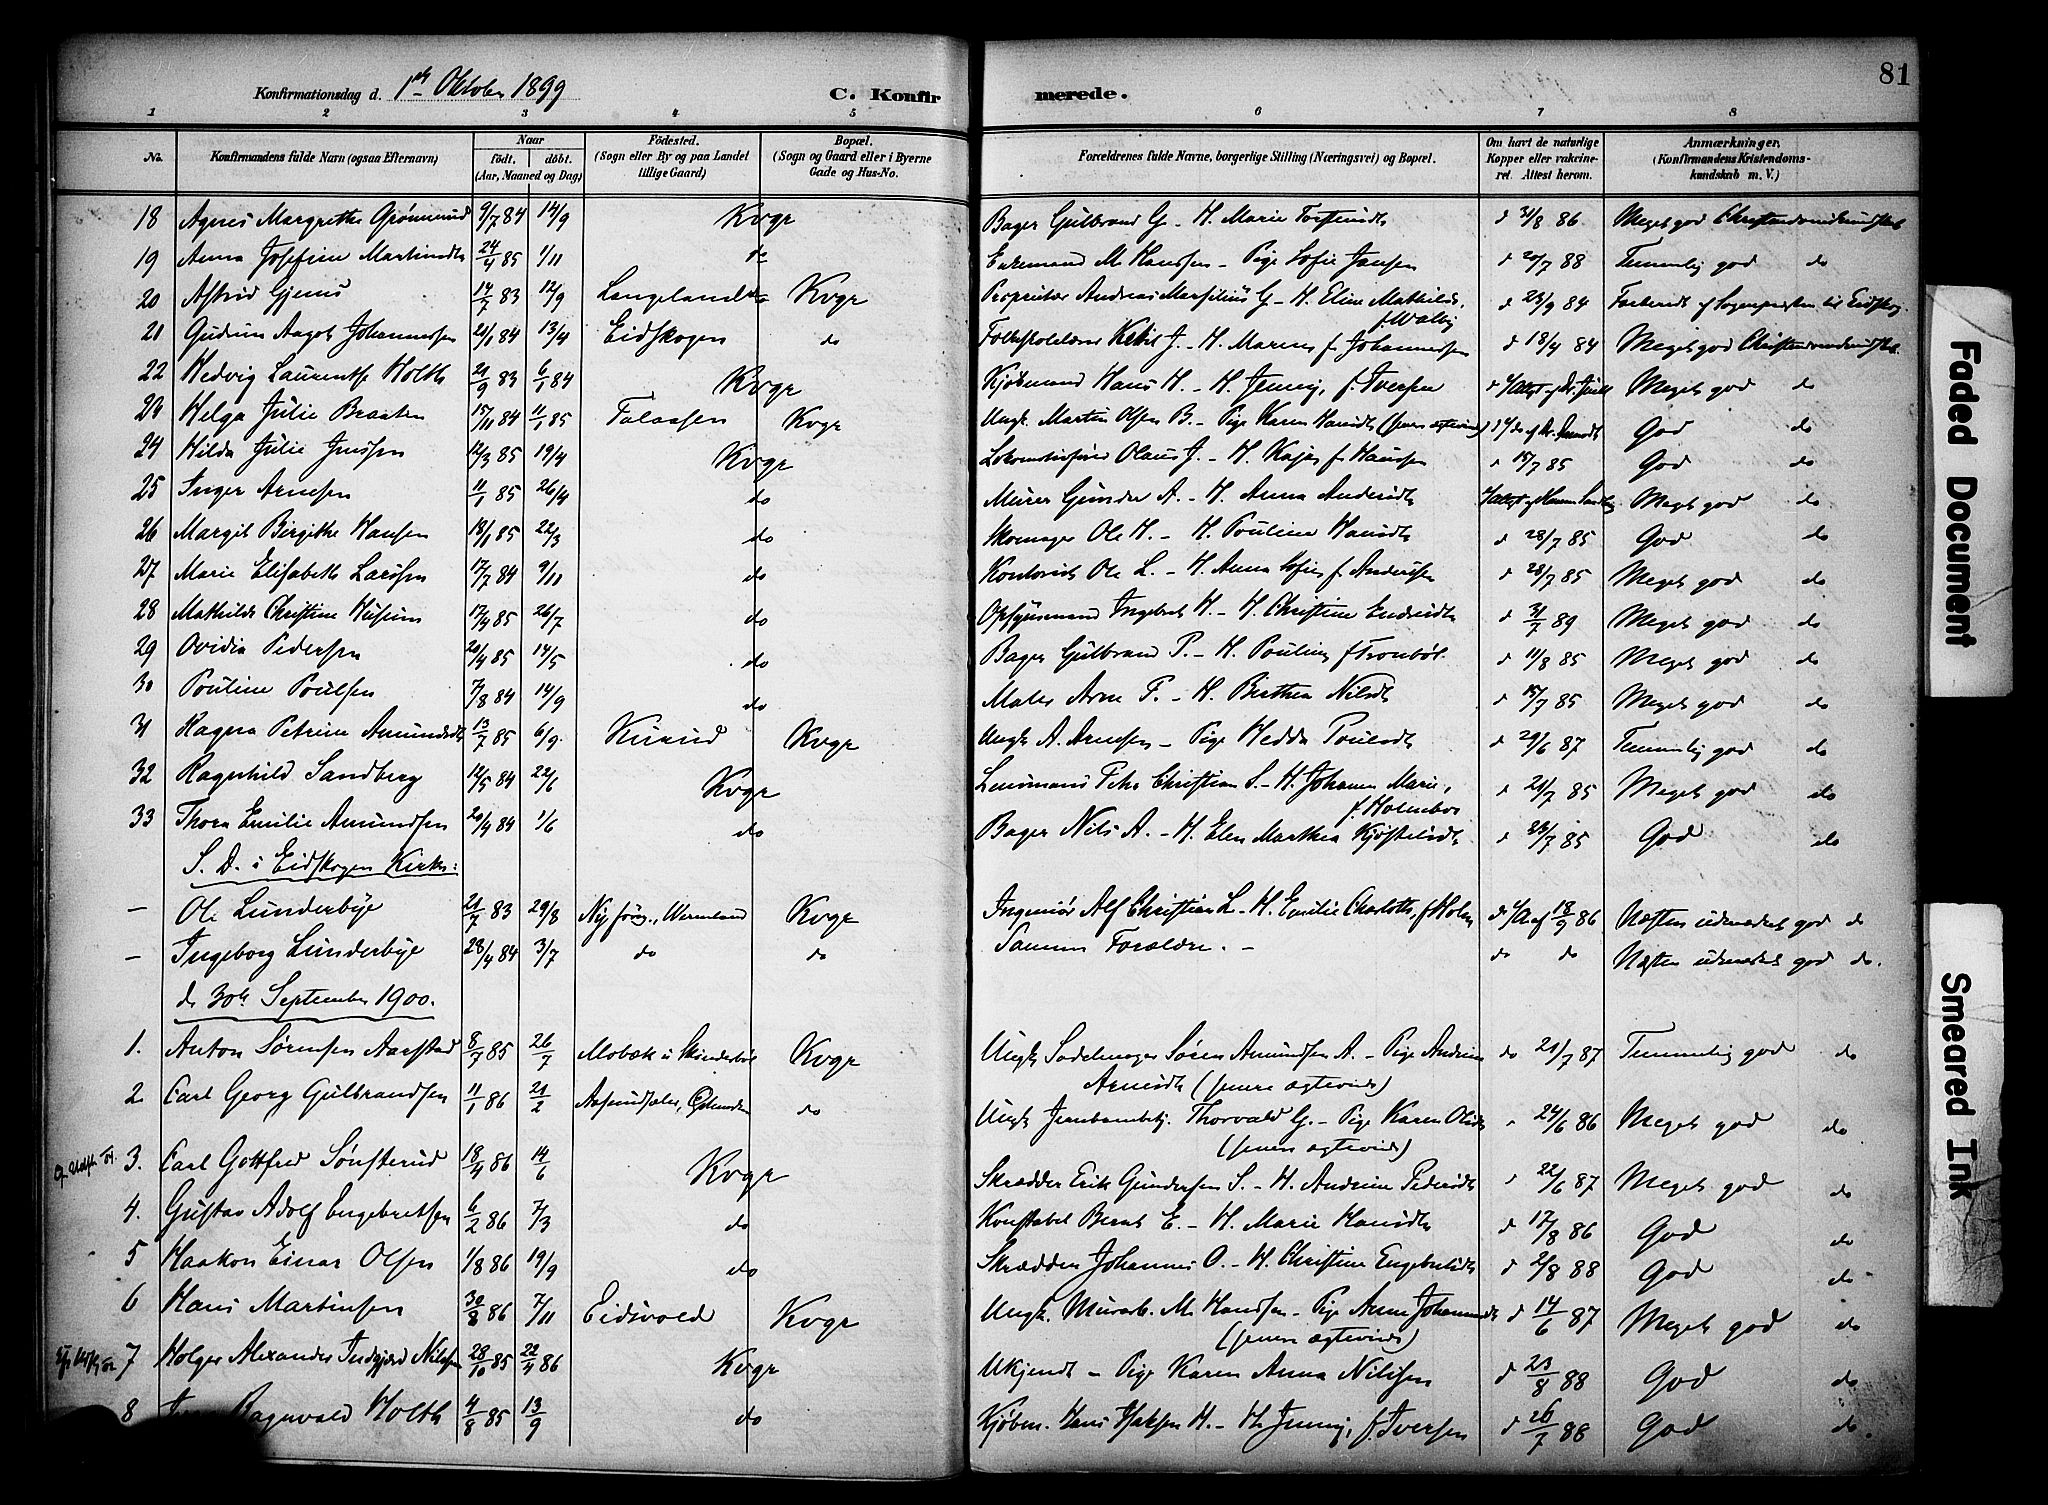 81
Konfirmationsdag d. 1ste Oktober 1899 C. Konfir merede.
1 2 3 4 5 6 7 8
No. Konfirmandens fulde Navn (ogsaa Efternavn) Naar födt. döbt. (Aar, Maaned og Dag) Födested. (Sogn eller By og paa Landet tillige Gaard) Bopæl. (Sogn og Gaard eller i Byerne Gade og Hus-No. Forældrenes fulde Navne, borgerlige Stilling (Næringsvei) og Bopæl. Om havt de naturlige Kopper eller vakcineret. Attest herom. Anmærkninger. (Konfirmandens Kristendomskundskab m. V.)
18 Agnes Margrethe Grønnerud 9/7 84 14/9 Kvgr Bager Gulbrand G - H. Marie Torstensdt d 31/8 86 Meget god Christendomskundskab
19 Anna Josefine Martinsdt 24/4 85 1/11 do Enkemand M. Hanssen - Pige Sofie Jansen d 20/7 88 Temmelig god do
20 Astrid Gjems 14/7 83 12/9 Langeland Kvgr Proprietær Andreas Marsilius G - H. Elise Mathilde, f. Walby d 23/9 84 Forberedt af Sognepresten til Eidskog
21 Gudrun Aagot Johannessen 21/1 84 13/4 Eidskogen do Folkeskolelærer Ketil J. - H. Maren f. Johannessen d 18/4 84 Meget god Christendomskundskab
22 Hedvig Laurentse Holth 21/9 83 6/1 84 Kvgr Kjøbmand Hans H. - H. Jenny, f. Iversen Meget god do
23 Helga Julie Braaten 15/11 84 11/1 85 Kvgr Ungk. Martin Olsen B. - Pige Karen Hansdt (senere ægteviede) God do
24 Hilda Julie Jenssen 12/3 85 19/4 Kvgr Lokomotivfører Olaus J. - H. Kaja f. Hanssen d 15/7 85 God do
25 Inger Arnesen 11/1 85 26/4 do Murer Gunder A. - H. Anna Andersdt Meget god do
26 Margit Birgithe Hansen 18/1 85 22/3 do Skomager Ole H. - H. Pouline Hansdt d 28/7 85 God do
27 Marie Elisabeth Larssen 17/7 84 9/11 do Kontorist Ole L. - H. Anna Sofie f. Andersen d 28/7 85 Meget god do
28 Mathilde Christine Husum 17/4 85 26/7 do Opsynsmand Ingebret H - H. Christine Endresdt d 31/7 89 Meget god do
29 Ovidia Pedersen 20/4 85 14/5 do Bager Gulbrand P. - H. Pouline f. Tronbøl d 11/8 85 Meget god do
30 Pouline Poulsen 7/8 84 14/9 do Maler Arne P. - H. Berthea Nilsdt d 15/7 85 Meget god do
31 Ragna Petrine Amundsdt 13/7 85 6/9 Kvgr Ungk A. Arnesen - Pige Hedda Poulsdt d 29/6 87 Temmelig god do
32 Ragnhild Sandberg 12/5 84 22/6 Kvgr Lensmand Peter Christian S. - H. Johanne Marie, f. Holmboe d 21/7 85 Meget god do
33 Thora Emilie Amundsen 20/4 84 1/6 do Bager Nils A. - H. Elen Marthea Kjøstelsdt d 23/7 85 God do
S. D. i Eidskogen Kirke:
- Ole Lunderbye 21/7 83 29/8 Wermland Kvgr Ingeniør Alf Christian L - H. Emilie Charlotte, f. Holm d 18/9 86 Næsten udmærket god do
- Ingeborg Lunderbye 28/4 84 3/7 do do Samme Forældre. - do do Næsten udmærket god do.
d. 30te September 1900.
1. Anton Sørensen Aarstad 8/7 85 26/7 Mobæk i Skinderbøl Kvgr Ungk Sadelmager Søren Amundsen A. - Pige Andrine Arnesdt (senere ægteviede) do 21/7 87 Temmelig god do
2 Carl Georg Gulbrandsen 11/1 86 21/2 do Ungk Jernbanebetj. Thorvald G. - Pige Karen Olsdt (senere ægteviede) 24/6 86 Meget god do
3. Carl Gottfred Sønsterud 18/4 86 14/6 Kvgr Skrædder Erik Gundersen S. - H. Andrine Pedersdt d 22/6 87 Meget god do
4. Gustav Adolf Engebretsen 6/2 86 7/3 do Konstabel Bernt E. - H. Marie Hansdt d 17/8 86 God do
5 Haakon Einar Olsen 1/8 86 19/9 do Skrædder Johannes O. - H. Christine Engebretsdt d 2/8 88 God do
6 Hans Martinsen 30/8 86 7/11 Eidsvold Kvgr Ungk. Murarb. M. Hanssen - Pige Anne Johannesdt (senere ægteviede) d 14/6 87 Meget god do
7 Holger Alexander Indgjærd Nilssen 28/10 85 22/4 86 Kvgr Ukjendt - Pige Karen Anna Nilssen d 23/8 88 God do
8 Ragnvald Holth 4/8 85 13/9 do Kjøbm. Hans Isaksen H. - H. Jenny, f. Iversen d 26/7 88 God do
Faded Document
Smeared Ink